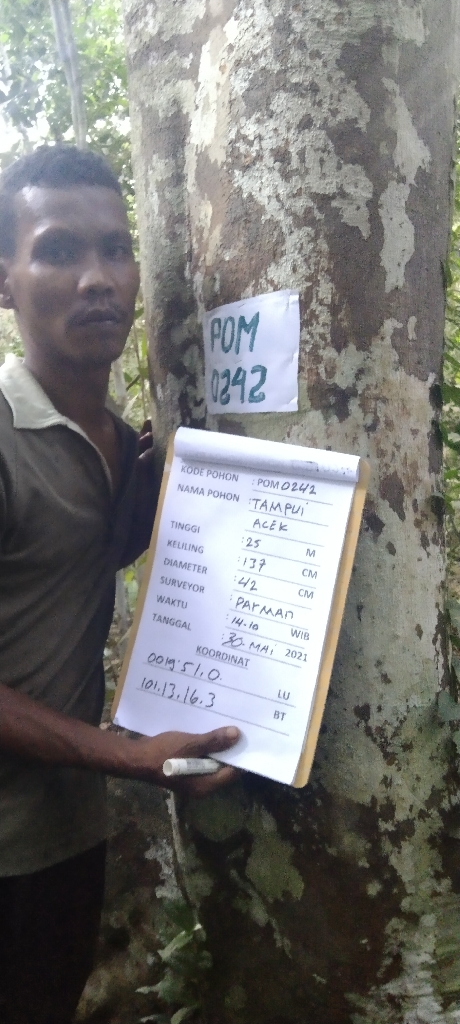 POM
0242
KODE POHON : POM 0242
NAMA POHON : TAMPUI
ACEK
TINGGI : 25 M
KELILING : 137 CM
DIAMETER : 42 CM
SURVEYOR : PARMAN
WAKTU : 14.10 WIB
TANGGAL : 30. MAI 2021
KOORDINAT
0019.51.0. LU
101.13.16.3 BT